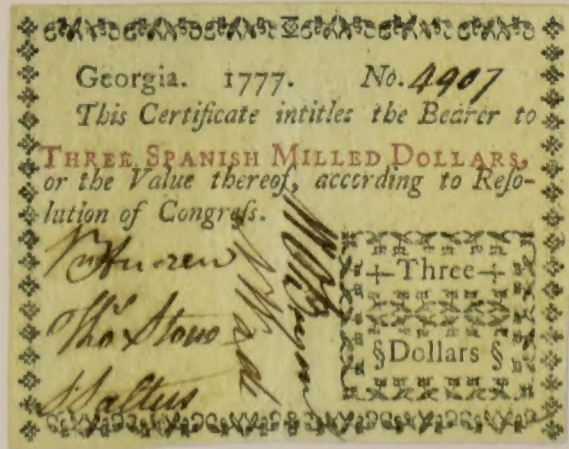 Georgia. 1777. No. 4907
This Certificate intitles the Bearer to
THREE SPANISH MILLED DOLLARS,
or the Value thereof, according to Reſo-
lution of Congreſs.
Thos Stone
N Wade
+Three+
§Dollars §